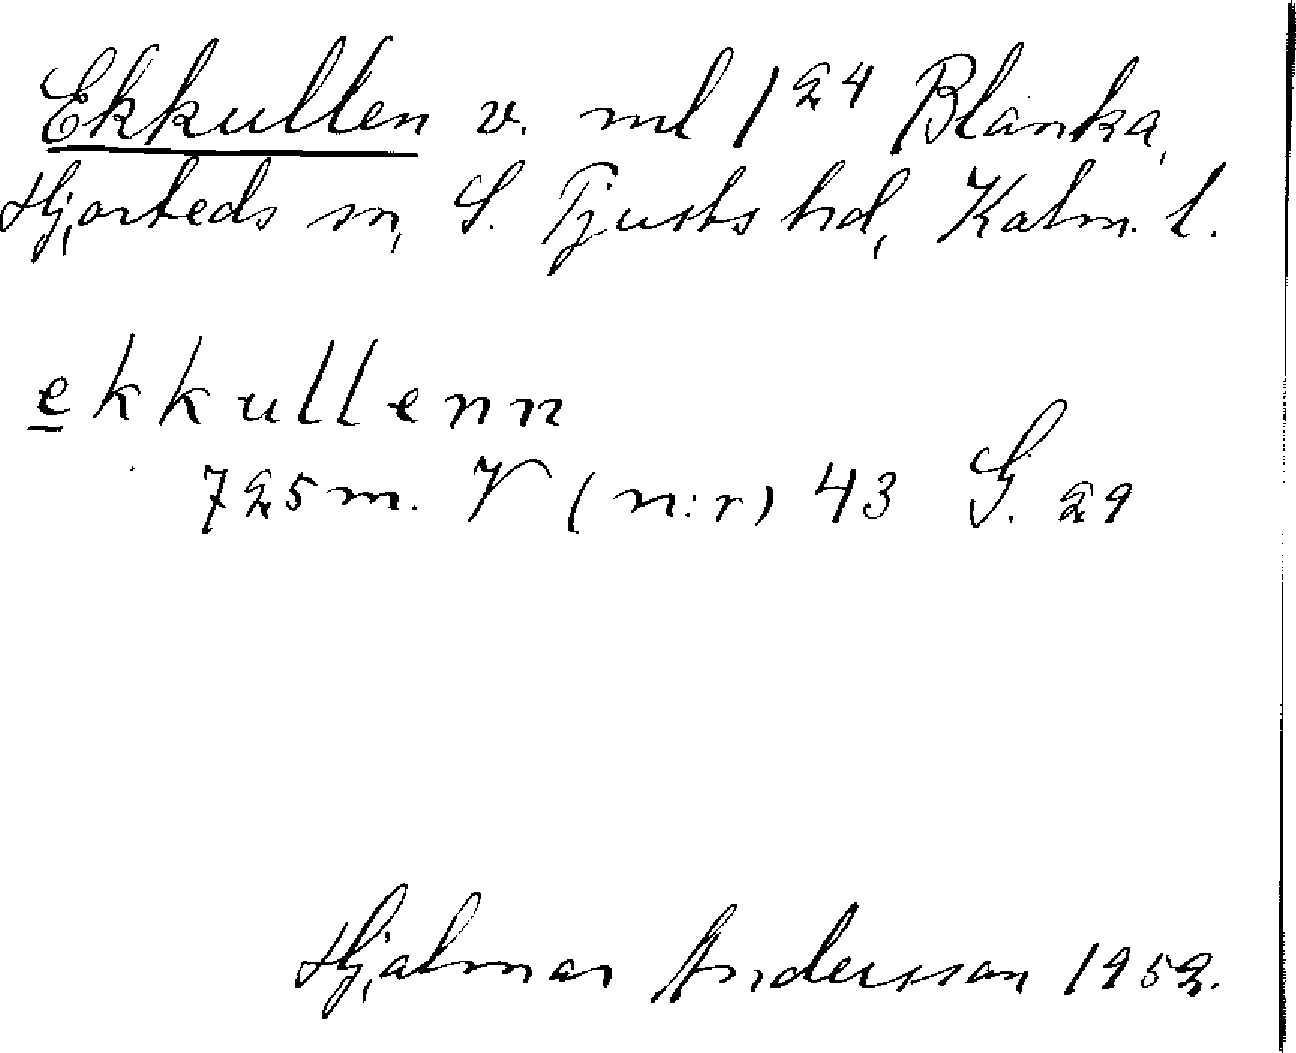 Ekkullen v. ml 1²⁴ Blanka,
Hjorteds sn, S. Tjusts hd, Kalm. l.
ekkullenn
725 m. V (n:r) 43 G. 29
Hjalmar Andersson 1952.